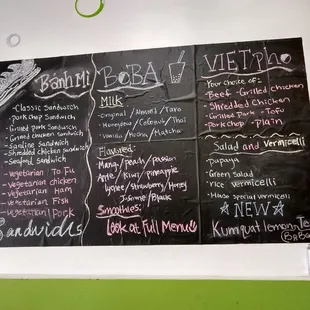 Bánh Mì
- Classic Sandwich
- Pork Chop Sandwich
- Grilled pork Sandwich
- Grilled chicken Sandwich
- Sardine Sandwich
- Shredded chicken Sandwich
- Seafood Sandwich
- Vegetarian To Fu
- Vegetarian chicken
- Vegetarian Ham
- Vegetarian Fish
- Vegetarian Pork
BoBA
Milk
- Original / Almond / Taro
- Honeydew / Coconut / Thai
- Vanilla / Mocha / Matcha
Flavored:
Mango / peach / passion
Kiwi / pineapple
Lychee / Strawberry / Honey
Jasmine / Black
Smoothies:
Look at Full Menu
VIET pho
Your choice of:
- Beef - Grilled chicken
- Shredded Chicken
- Grilled Pork - Tofu
- Pork chop - Plain
Salad and Vermicelli
- Papaya
- Green Salad
- rice vermicelli
- House special vermicelli
NEW
Kumquat lemon Te